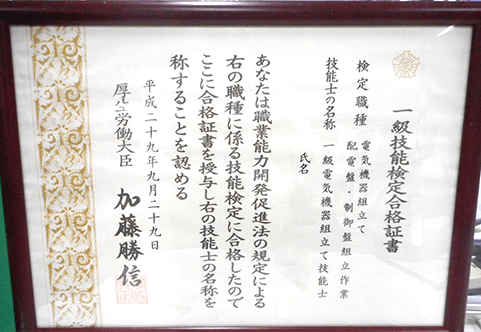 一級技能検定合格証書
検定職種 電気機器組立て
配電盤・制御盤組立作業
技能士の名称 一級電気機器組立て技能士
氏名
あなたは職業能力開発促進法の規定による
右の職種に係る技能検定に合格したので
ここに合格証書を授与し右の技能士の名称を
称することを認める
平成二十九年九月二十九日
厚生労働大臣 加藤勝信